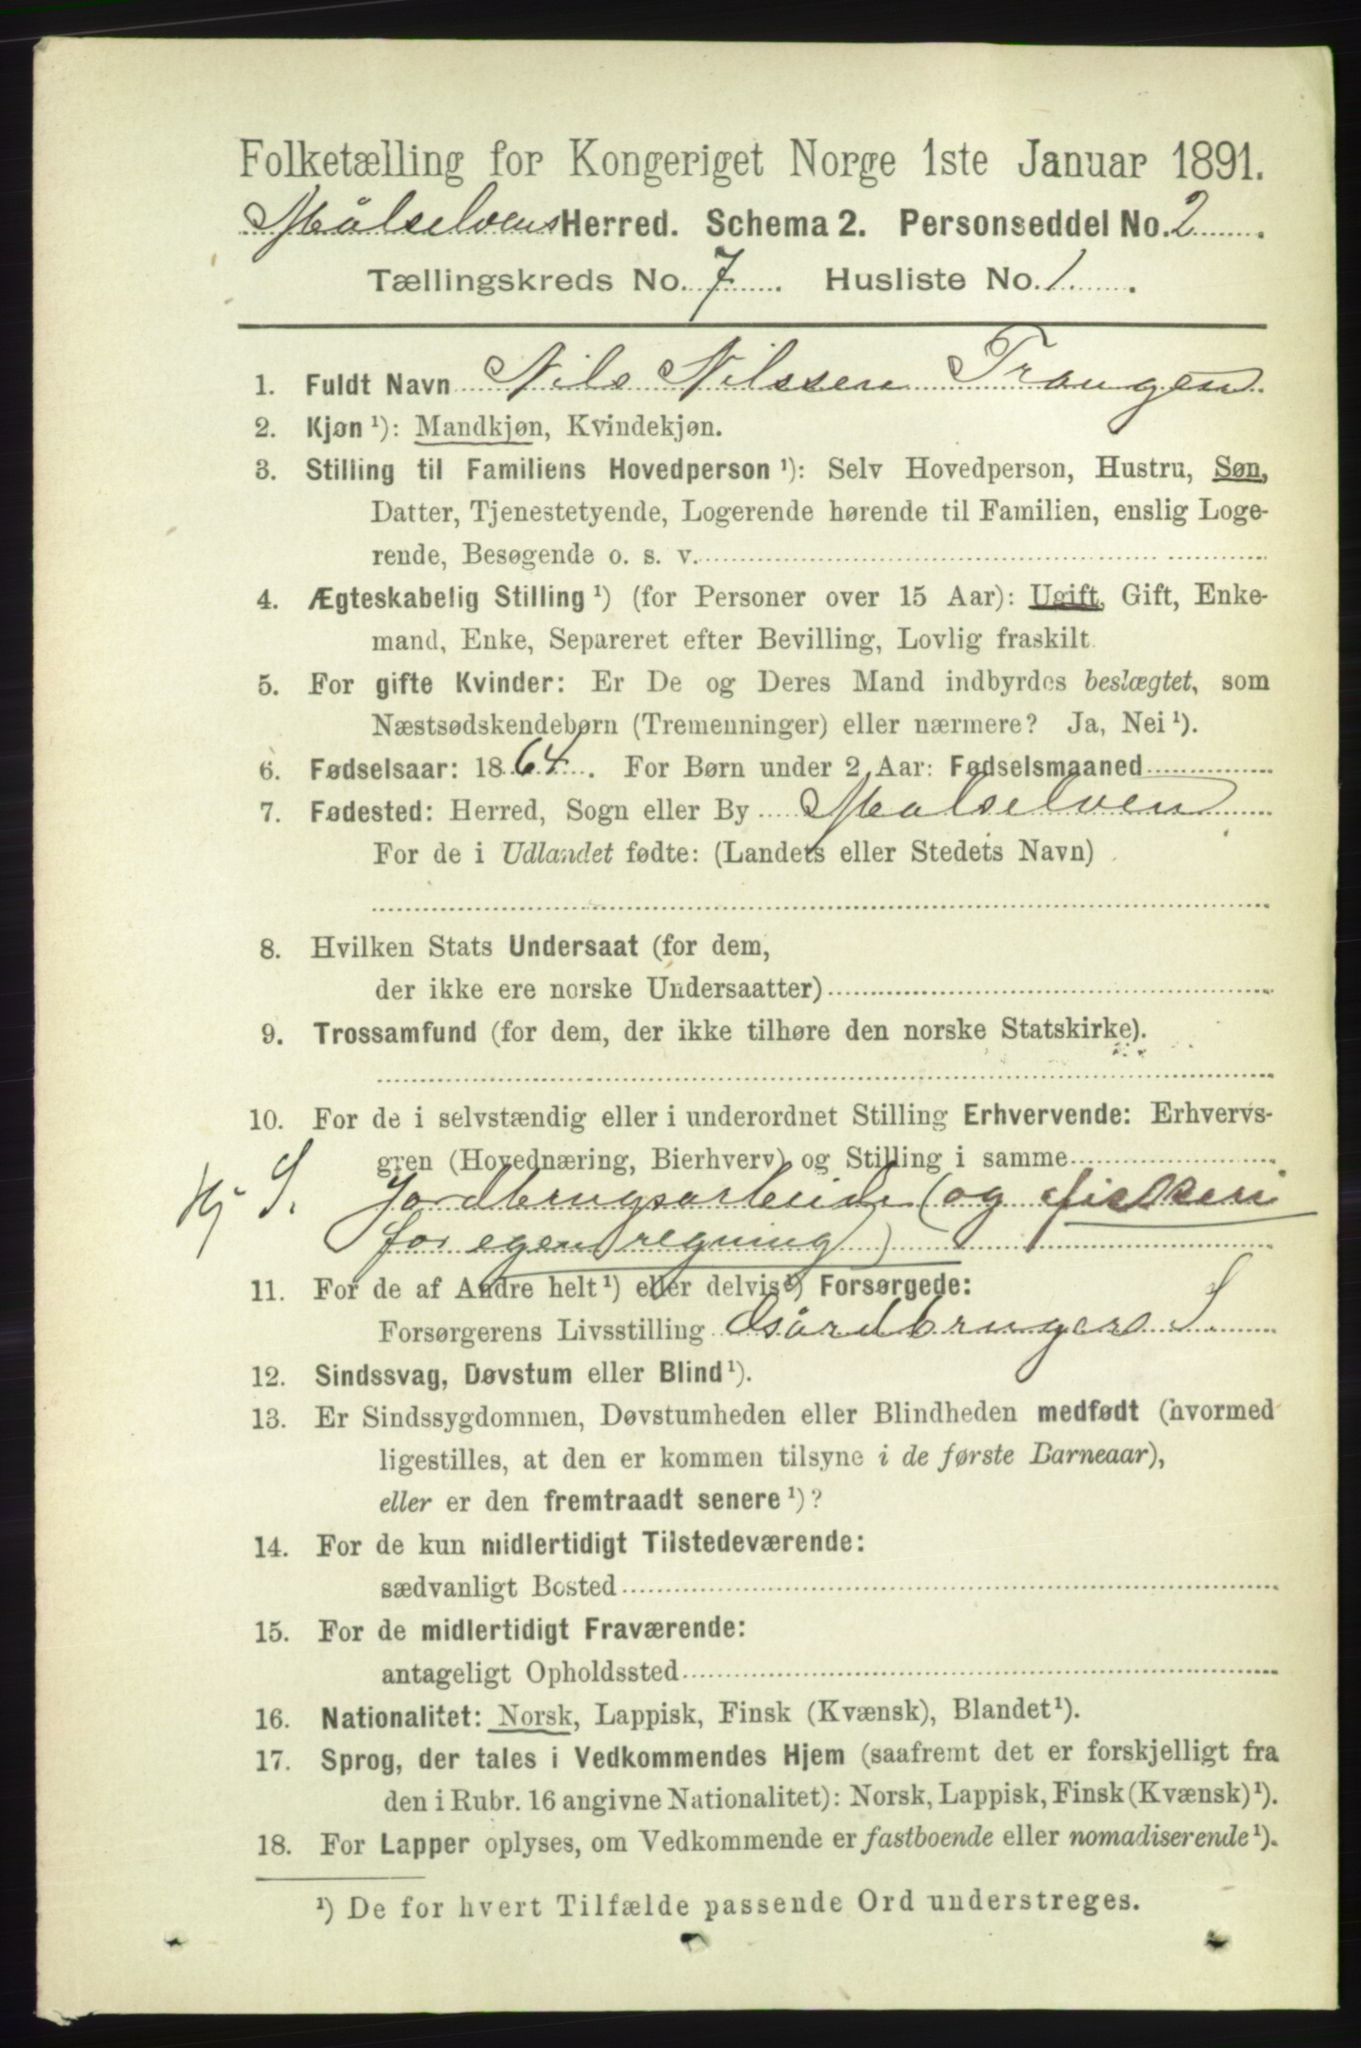 Folketælling for Kongeriget Norge 1ste Januar 1891.
Målselvens Herred. Schema 2. Personseddel No. 2
Tællingskreds No. 7 Husliste No. 1
1. Fuldt Navn Nils Nilssen Trangen
2. Kjøn ¹): Mandkjøn, Kvindekjøn.
3. Stilling til Familiens Hovedperson ¹): Selv Hovedperson, Hustru, Søn,
Datter, Tjenestetyende, Logerende hørende til Familien, enslig Loge-
rende, Besøgende o. s. v.
4. Ægteskabelig Stilling ¹) (for Personer over 15 Aar): Ugift, Gift, Enke-
mand, Enke, Separeret efter Bevilling, Lovlig fraskilt.
5. For gifte Kvinder: Er De og Deres Mand indbyrdes beslægtet, som
Næstsødskendebørn (Tremenninger) eller nærmere? Ja, Nei ¹).
6. Fødselsaar: 1864. For Børn under 2 Aar: Fødselsmaaned
7. Fødested: Herred, Sogn eller By Målselven
For de i Udlandet fødte: (Landets eller Stedets Navn)
8. Hvilken Stats Undersaat (for dem,
der ikke ere norske Undersaatter)
9. Trossamfund (for dem, der ikke tilhøre den norske Statskirke).
10. For de i selvstændig eller i underordnet Stilling Erhvervende: Erhvervs-
gren (Hovednæring, Bierhverv) og Stilling i samme
Hj S. Jordbrugsarbeide (og fiskeri
for egen regning)
11. For de af Andre helt ¹) eller delvis ¹) Forsørgede:
Forsørgerens Livsstilling Gårdbrugers S.
12. Sindssvag, Døvstum eller Blind ¹).
13. Er Sindssygdommen, Døvstumheden eller Blindheden medfødt (hvormed
ligestilles, at den er kommen tilsyne i de første Barneaar),
eller er den fremtraadt senere ¹)?
14. For de kun midlertidigt Tilstedeværende:
sædvanligt Bosted
15. For de midlertidigt Fraværende:
antageligt Opholdssted
16. Nationalitet: Norsk, Lappisk, Finsk (Kvænsk), Blandet ¹).
17. Sprog, der tales i Vedkommendes Hjem (saafremt det er forskjelligt fra
den i Rubr. 16 angivne Nationalitet): Norsk, Lappisk, Finsk (Kvænsk) ¹).
18. For Lapper oplyses, om Vedkommende er fastboende eller nomadiserende ¹).
¹) De for hvert Tilfælde passende Ord understreges.